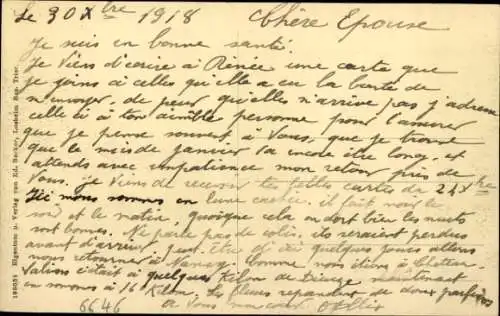 Le 30 Xbre 1918 Chère Epouse
Je suis en bonne santé.
Je viens d'écrire à Renée une carte que
je joins à celles qu'elle a eu la bonté de
m'envoyer, de peur qu'elles n'arrive pas j'adresse
celle ci à ton aimable personne pour t'assurer
que je pense souvent à Vous, que je trouve
que le mois de janvier va encore être long, et
attends avec impatience mon retour près de
Vous. Je viens de recevoir tes petites cartes du 24 Xbre
Ici nous sommes en caserne. il fait noir le
soir et le matin, quoique cela on dort bien les nuits
sont bonnes. Ne parle pas de colis, ils seraient perdus
avant d'arriver, peut-être d'ici quelques jours allons
nous retourner à Nancy. Comme nous étions à Château
Salins c'était à quelques Kilom de Dieuze maintenant
en sommes à 16 Kilom. Les fleurs répandent de doux parfums
à Vous mon cœur
6646
180036 Eigentum u. Verlag von Ed. Becker, Losheim, Bez. Trier.